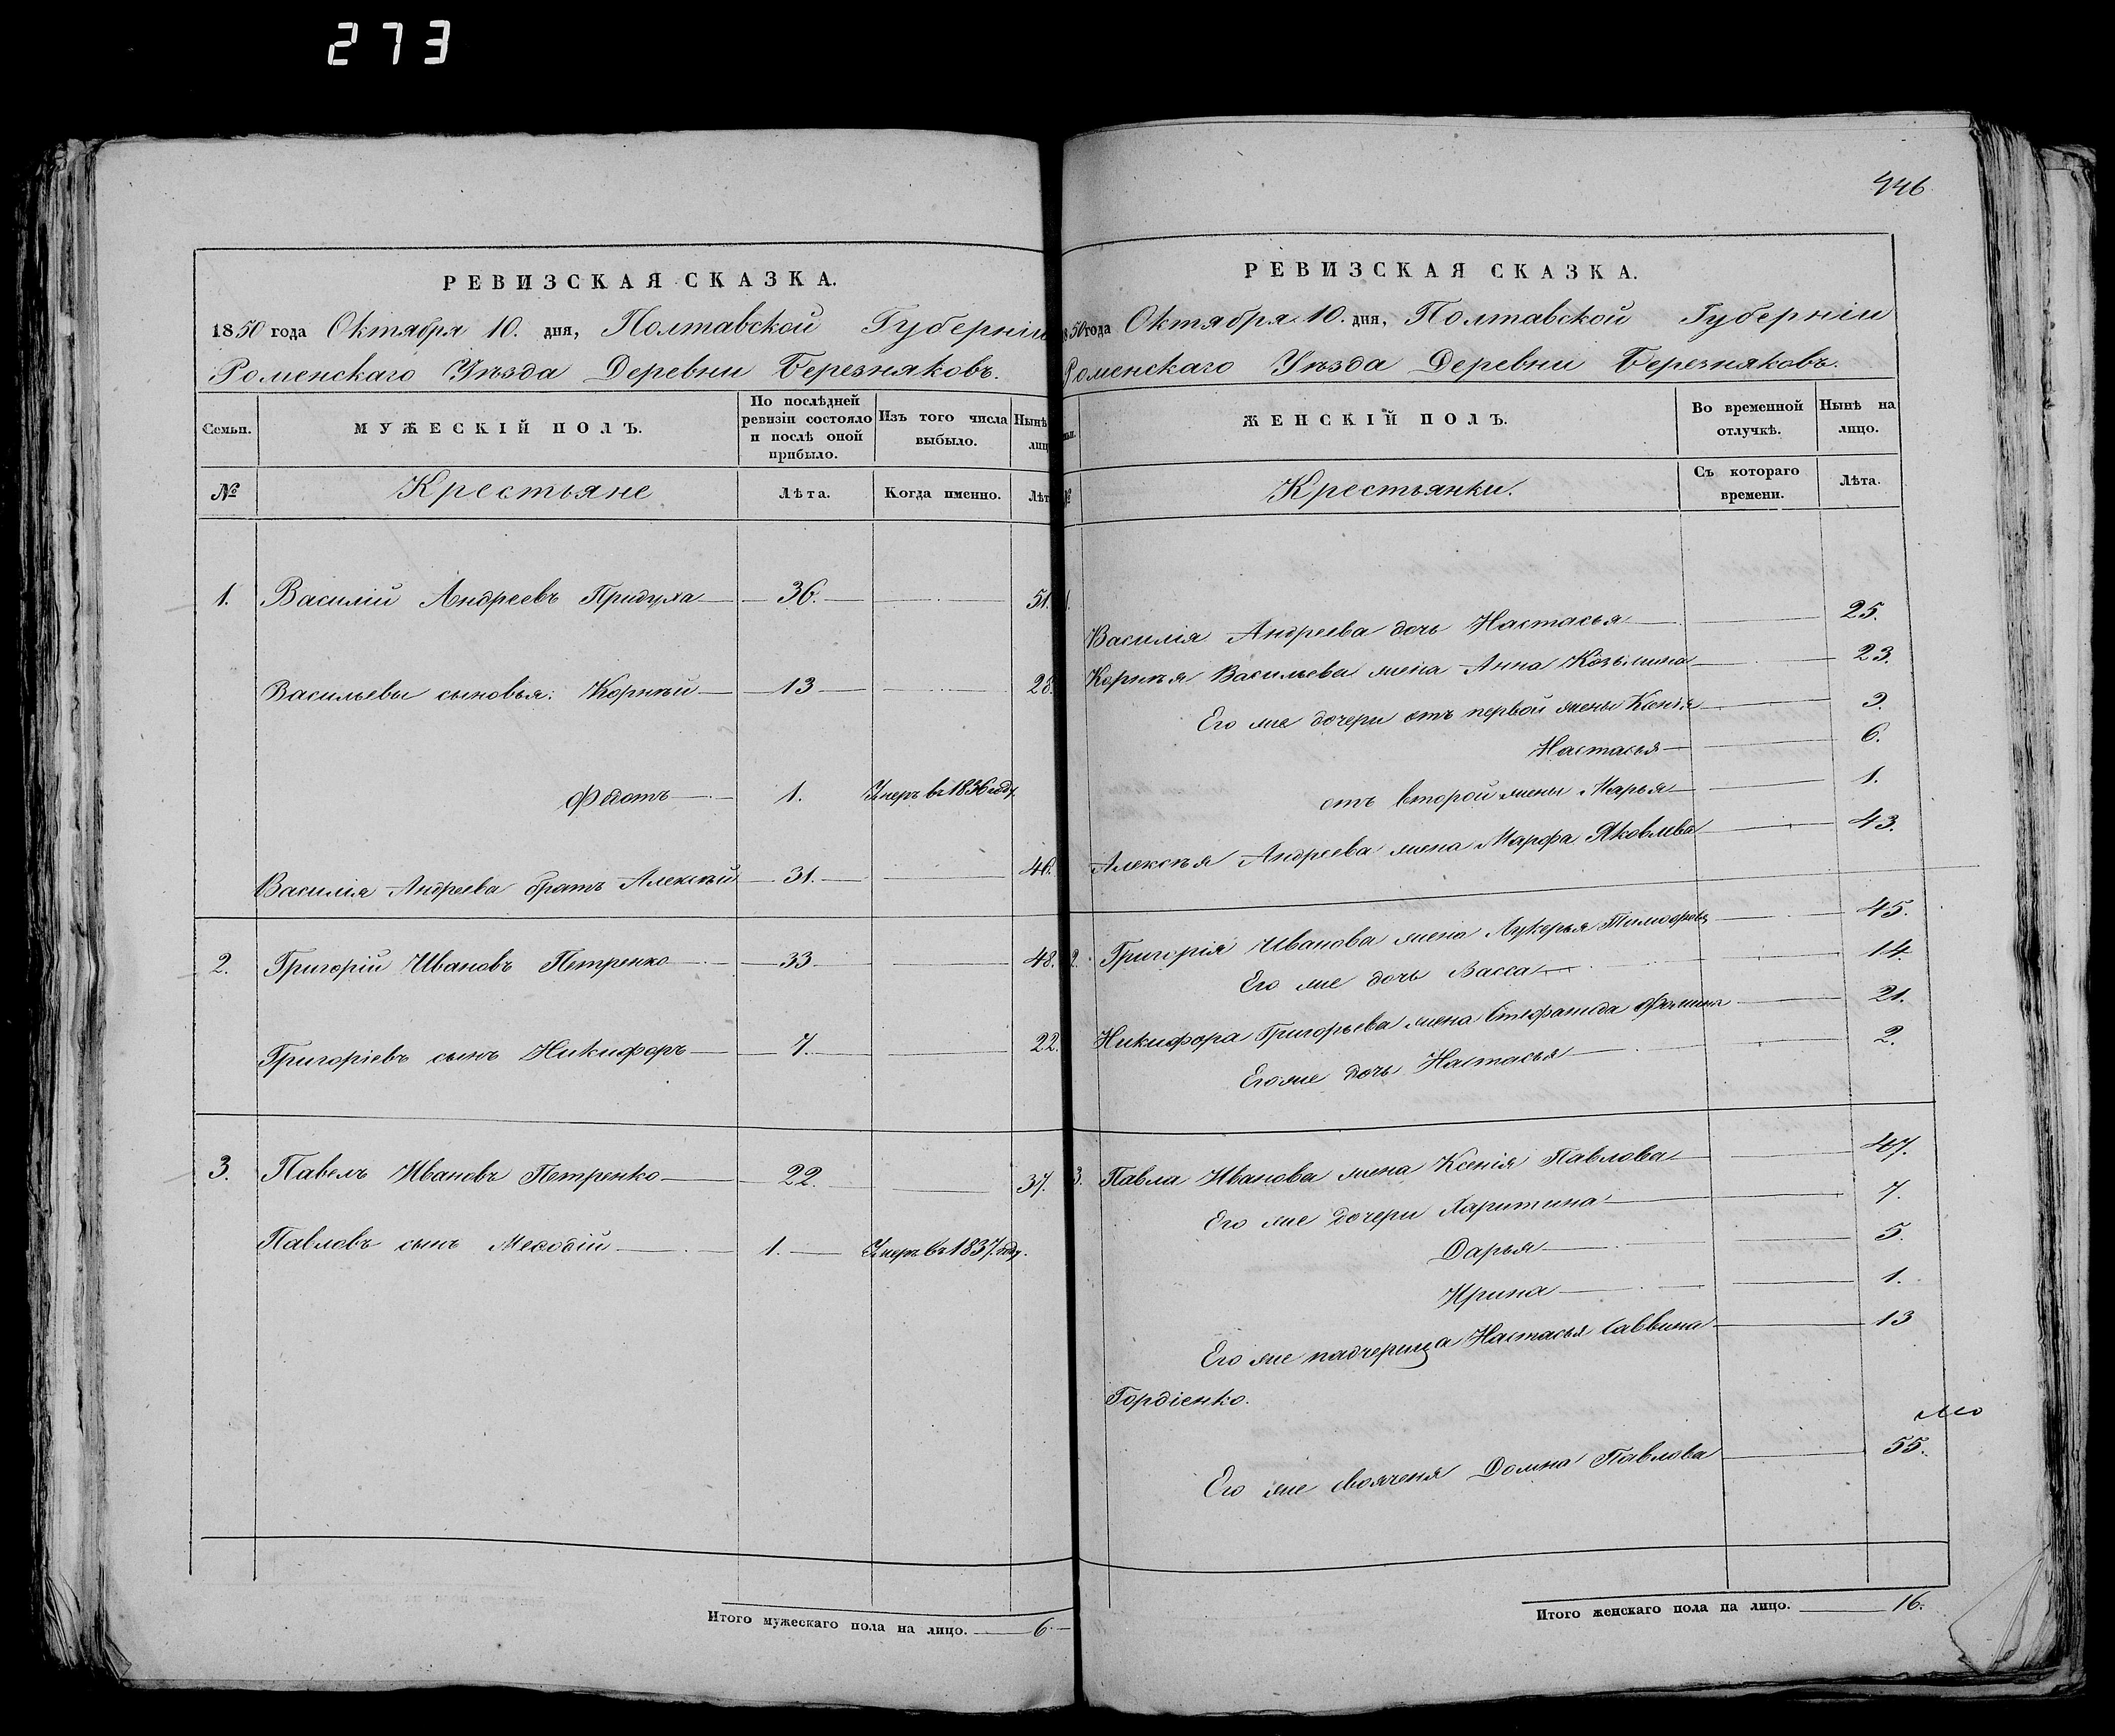 273
РЕВИЗСКАЯ СКАЗКА.
1850 года Октября 10. дня, Полтавской Губерніи
Роменскаго Уѣзда Деревни Березняковъ.
Семьи.
МУЖЕСКІЙ ПОЛЪ.
По послѣдней ревизіи состояло и послѣ оной прибыло.
Изъ того числа выбыло.
Нынѣ
лиц
№
Крестьяне
Лѣта.
Когда именно.
Лѣт
1. Василій Андреевъ Придуха 36. 51.
Васильевы сыновья: Корнѣй 13 28.
Федотъ 1. Умеръ въ 1836 году.
Василія Андреева братъ Алексѣй 31. 46.
2. Григорій Ивановъ Петренко 33 48.
Григоріевъ сынъ Никифоръ 7. 22.
3. Павелъ Ивановъ Петренко 22. 37.
Павловъ сынъ Меѳодій 1. Умеръ въ 1837 году.
Итого мужескаго пола на лицо. 6.
446
РЕВИЗСКАЯ СКАЗКА.
1850 года Октября 10. дня, Полтавской Губерніи
Роменскаго Уѣзда Деревни Березняковъ.
ЖЕНСКІЙ ПОЛЪ.
Во временной отлучкѣ.
Нынѣ на лицо.
№
Крестьянки.
Съ котораго времени.
Лѣта.
1.
Василія Андреева дочь Настасья 25.
Корнѣя Васильева жена Анна Козьмина 23.
Его же дочери отъ первой жены Ксенія
Настасья 6.
отъ второй жены Марья 1.
Алексѣя Андреева жена Марфа Яковлева 43.
2. Григорія Иванова жена Лукерья 45.
Его же дочь Васса 14
Никифора Григорьева жена Стефанида 21.
Его же дочь Настасья 2.
3. Павла Иванова жена Ксенія Павлова 47.
Его же дочери Харитина 7.
Дарья 5.
Ирина 1.
Его же падчерица Настасья Саввина 13
Гордіенко.
Его же своячень Домна Павлова 55.
Итого женскаго пола на лицо. 16.